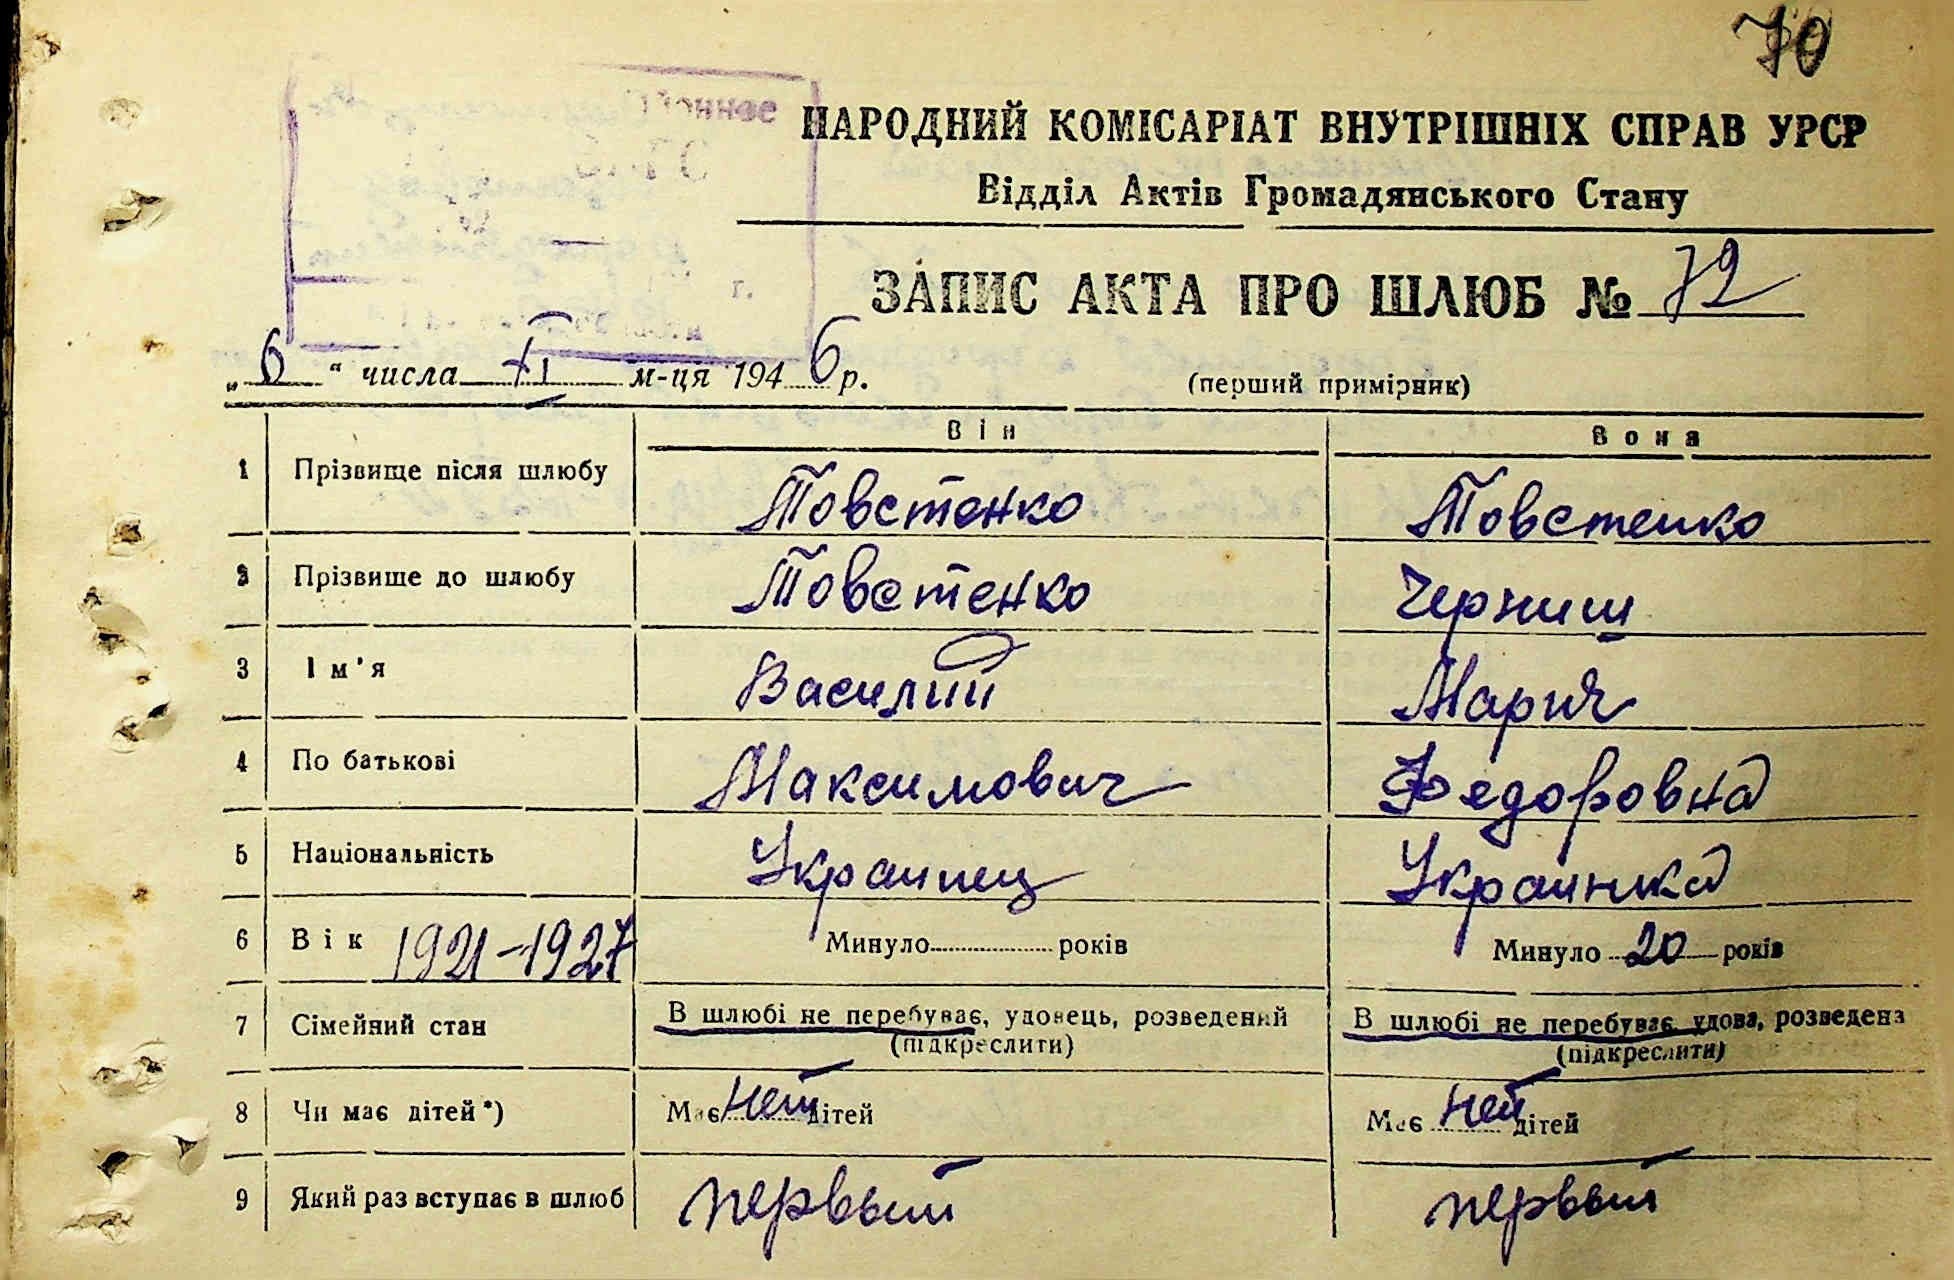 70
НАРОДНИЙ КОМІСАРІАТ ВНУТРІШНІХ СПРАВ УРСР
Відділ Актів Громадянського Стану
ЗАПИС АКТА ПРО ШЛЮБ № 72
„6“ числа XI м-ця 1946 р.
(перший примірник)
Він Вона
1 Прізвище після шлюбу Товстенко Товстенко
2 Прізвище до шлюбу Товстенко Черниш
3 Ім'я Василий Мария
4 По батькові Максимович Федоровна
5 Національність Украинец Украинка
6 Вік 1921-1927 Минуло років Минуло 20 років
7 Сімейний стан В шлюбі не перебуває, удовець, розведений В шлюбі не перебуває, удова, розведена
(підкреслити) (підкреслити)
8 Чи має дітей*) Має нет дітей Має нет дітей
9 Який раз вступає в шлюб первый первый